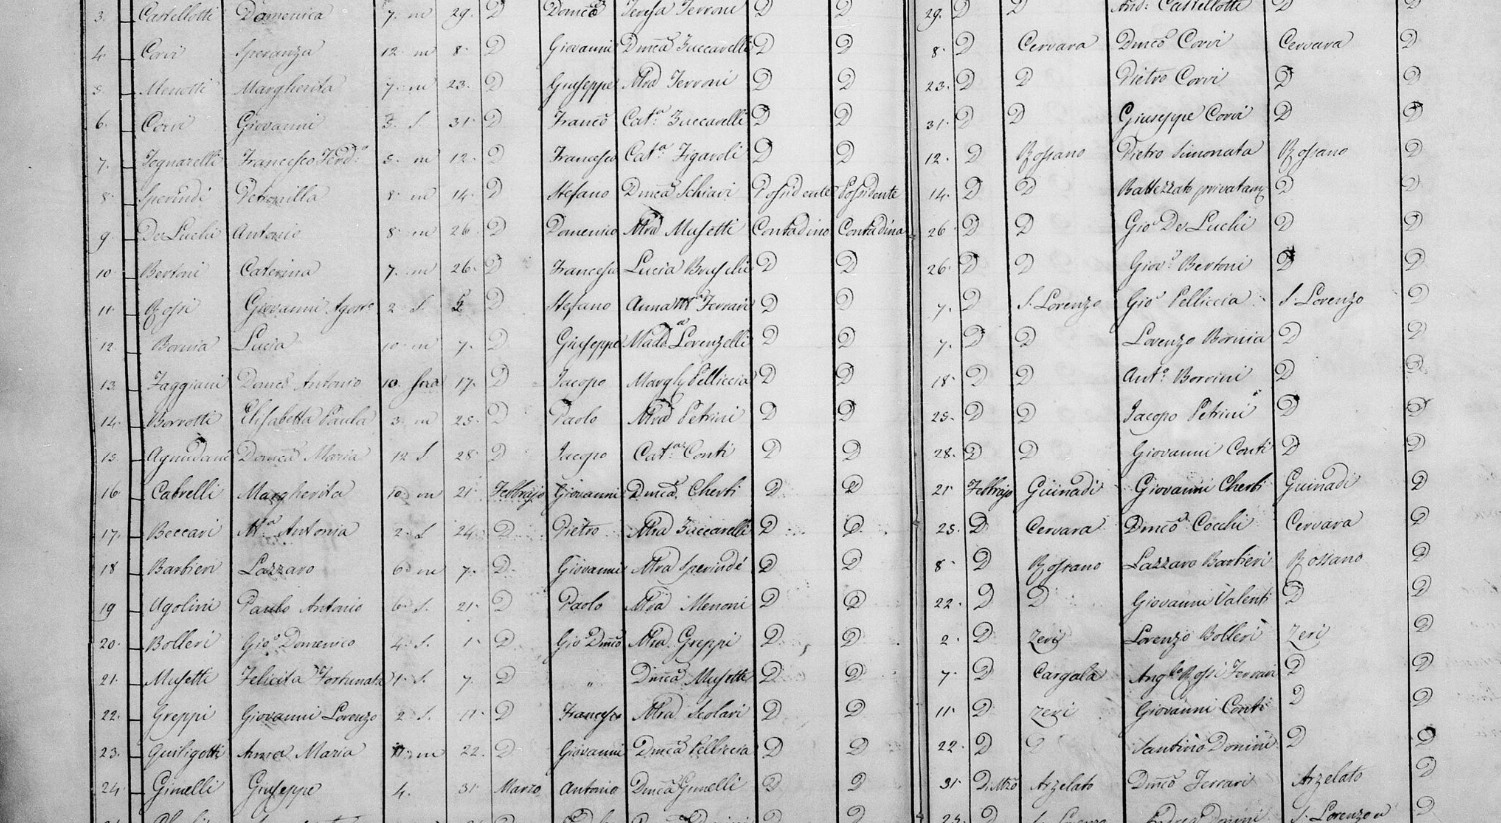 3. Castellotti Domenica 7. m 29. D Domco Teresa Ferroni D D 29. D D And: Castellotti D D
4. Corvi Speranza 12 m 8. D Giovanni Dmca Zuccarelli D D 8. D Cervara Dmco Corvi Cervara D
5. Menotti Margherita 7. m 23. D Giuseppe Mra Ferroni D D 23. D D Pietro Corvi D D
6. Corvi Giovanni 3. S 31. D Franco Cata Zuccarelli D D 31. D D Giuseppe Corvi D D
7. Tognarelli Francesco Ferdo m 12. D Francesco Cata Figaroli D D 12. D Rossano Pietro Simonata Rossano D
8. Sperindi Petronilla 8. m 14. D Stefano Dmca Schiavi Possidente Possidente 14. D D Battezzato privatam D D
9. De Luchi Antonio 8. m 26. D Domenico Mra Musetti Contadino Contadina 26. D D Gioo De Luchi D D
10. Bertoni Caterina 7. m 26. D Francesco Lucia D D 26. D D Giovo Bertoni D D
11. Rossi Giovanni Agoso 2. S. D Stefano Anna Mra Ferrari D D 7. D S. Lorenzo Gioo Pelliccia S. Lorenzo D
12. Bornia Lucia 10 m 7. D Giuseppe Madda Lorenzelli D D 7. D D Lorenzo Bornia D D
13. Faggiani Domco Antonio 10. 17. D Jacopo Margta Pelliccia D D 18. D D Anto Bornini D D
14. Borrotti Elisabetta Paula 3. m 25. D Paolo Mra Petrini D D 25. D D Jacopo Petrini D D
15. Domca Maria 12 S 28. D Jacopo Cata Conti D D 28. D D Giovanni Conti D D
16 Cabrelli Margherita 10. m 21. Febbrajo Giovanni Dmca Cherbi D D 21. Febbrajo Guinadi Giovanni Cherbi Guinadi D
17. Beccari Ma Antonia 2. S 24. D Pietro Mra Zuccarelli D D 25. D Cervara Dmco Cocchi Cervara D
18 Barbieri Lazzaro 6. m 7. D Giovanni Mra Sperindi D D 8. D Rossano Lazzaro Barbieri Rossano D
19 Ugolini Paulo Antonio 6. S. 21. D Paolo Mra Menoni D D 22. D D Giovanni Valenti D D
20. Bolleri Gioo Domenico 4. S. 1. D Gio Dmco Mra Greppi D D 2. D Zeri Lorenzo Bolleri Zeri D
21. Musetti Felicita Fortunata S. 7. D " Dmca Musetti D D 7. D Cargala Angla Rossi Ferrari D D
22. Greppi Giovanni Lorenzo 2. S. 11. D Francesco Mra Scolari D D 11. D Zeri Giovanni Conti D D
23. Quiligotti Anna Maria 11. m 22. D Giovanni Dmca Pelliccia D D 22. D D Santino Donini D D
24. Gimelli Giuseppe 4. 31 Marzo Antonio Dmca Gimelli D D 31. D. Mzo Arzelato Dmco Ferrari Arzelato D
S. Lorenzo